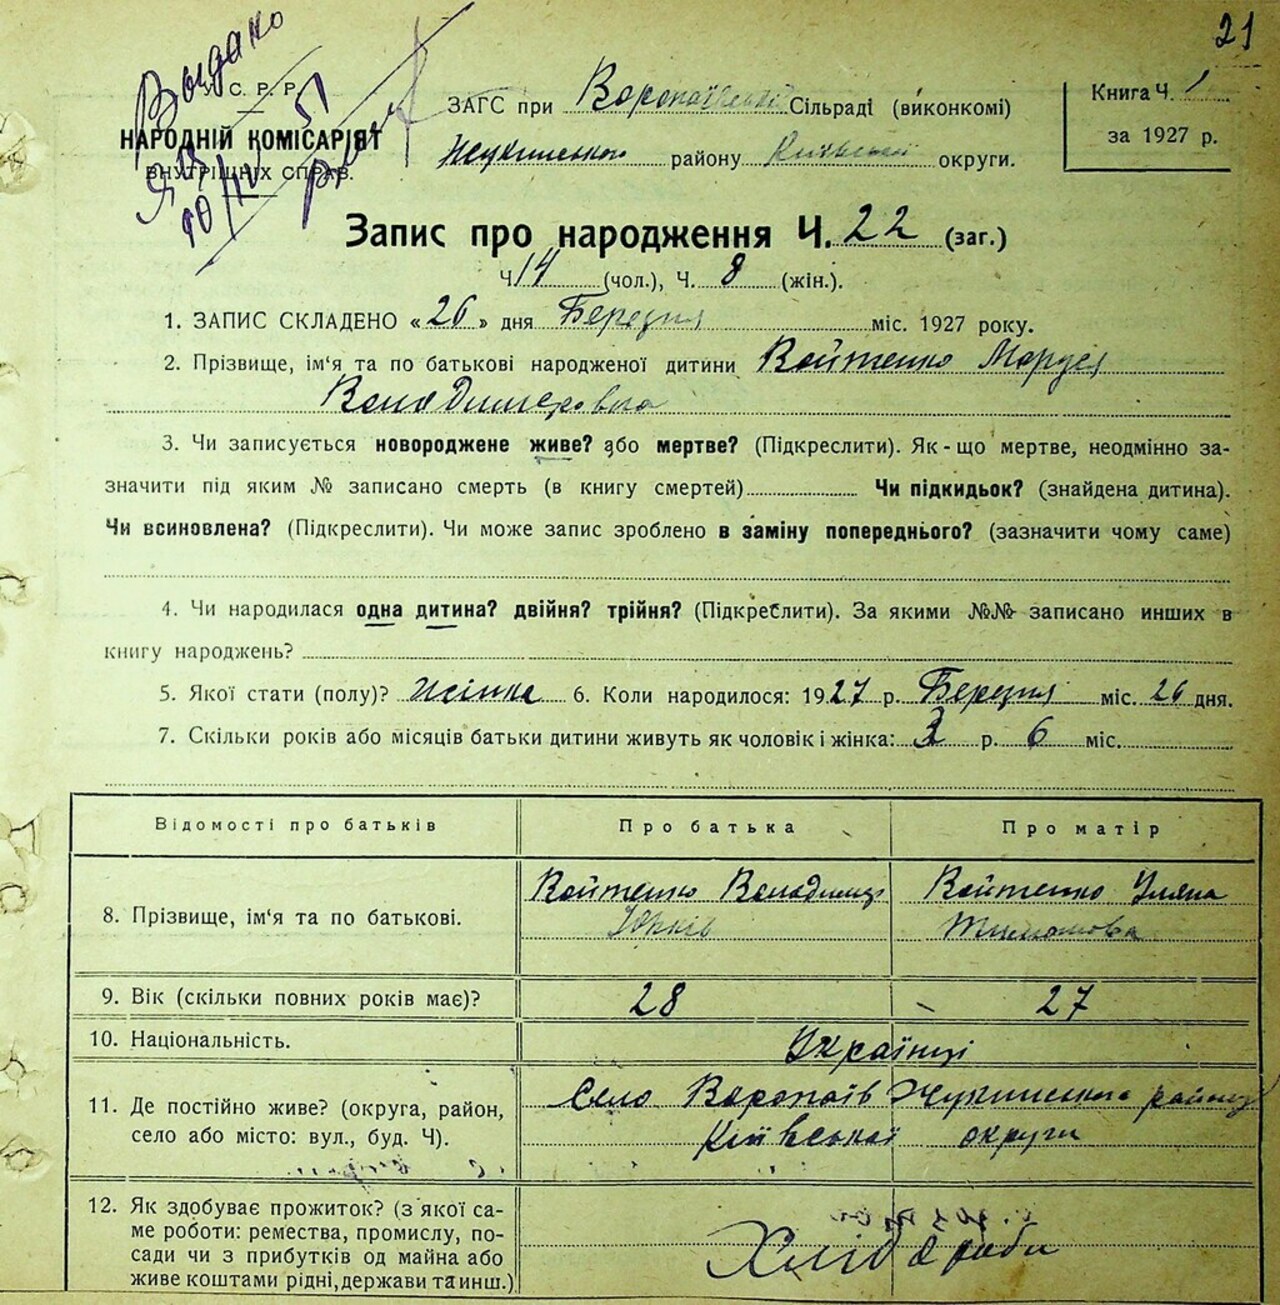 21
Выдано
У. С. Р. Р.
НАРОДНІЙ КОМІСАРІЯТ
ВНУТРІШНІХ СПРАВ.
51
ЗАГС при Воропаївській Сільраді (виконкомі)
Жукинського району Київської округи.
Книга Ч. 1
за 1927 р.
Запис про народження Ч. 22 (заг.)
Ч 14 (чол.), Ч. 8 (жін.).
1. ЗАПИС СКЛАДЕНО «26» дня Березня міс. 1927 року.
2. Прізвище, ім'я та по батькові народженої дитини Войтенко Маруся
Володимеровна
3. Чи записується новороджене живе? або мертве? (Підкреслити). Як-що мертве, неодмінно за-
значити під яким № записано смерть (в книгу смертей) Чи підкидьок? (знайдена дитина).
Чи всиновлена? (Підкреслити). Чи може запис зроблено в заміну попереднього? (зазначити чому саме)
4. Чи народилася одна дитина? двійня? трійня? (Підкреслити). За якими №№ записано инших в
книгу народжень?
5. Якої стати (полу)? жінка 6. Коли народилося: 1927 р. Березня міс. 26 дня.
7. Скільки років або місяців батьки дитини живуть як чоловік і жінка: 3 р. 6 міс.
Відомості про батьків Про батька Про матір
8. Прізвище, ім'я та по батькові. Войтенко Володимир Войтенко Уляна
Юрків Тимошова
9. Вік (скільки повних років має)? 28 27
10. Національність. Українці
11. Де постійно живе? (округа, район, Село Воропаїв Жукинського району
село або місто: вул., буд. Ч). Київської округи
12. Як здобуває прожиток? (з якої са-
ме роботи: ремества, промислу, по-
сади чи з прибутків од майна або Хлібороби
живе коштами рідні, держави та инш.)